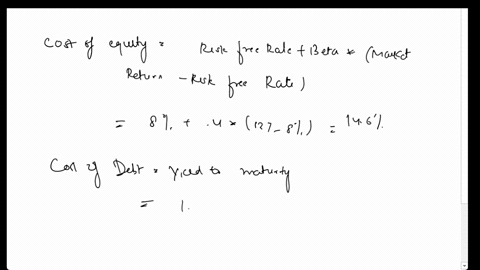 Cost of equity = Risk free Rate + Beta * (Market
Return - Risk free Rate)
= 8% + .4 * (12% - 8%) = 14.6%
Cost of Debt = Yield to maturity
= 1.